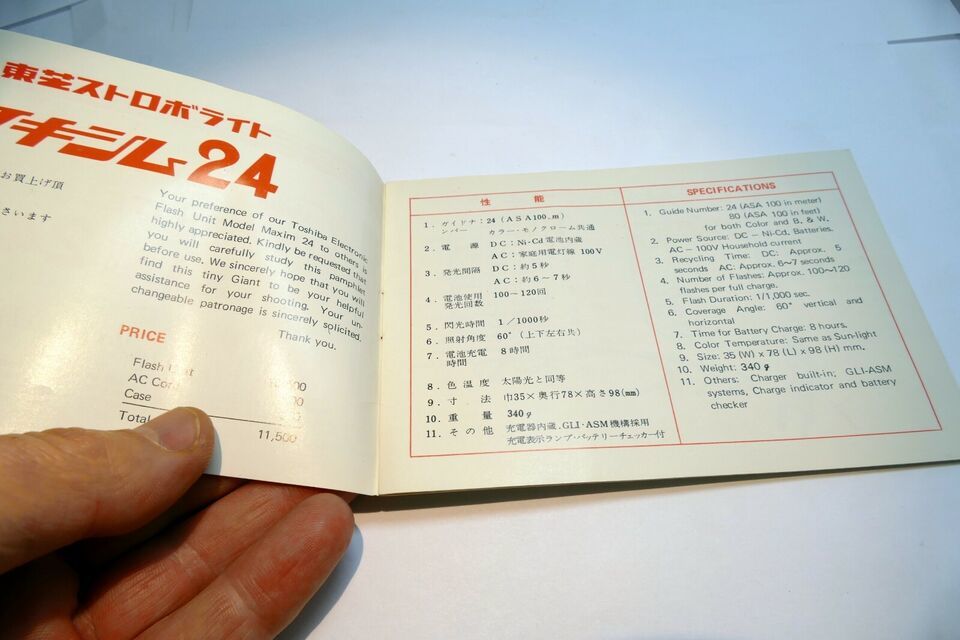 東芝ストロボライト
マキシム24
お買上げ頂
さいます
Your preference of our Toshiba Electronic
Flash Unit Model Maxim 24 to others is
highly appreciated. Kindly be requested that
you will carefully study this pamphlet
before use. We sincerely hope that you will
find this tiny Giant to be your helpful
assistance for your shooting. Your un-
changeable patronage is sincerely solicited.
Thank you.
PRICE
Flash Unit
AC Cord
Case
Total
11,500
性 能
1. ガイドナンバー : 24 (ASA100.m)
カラー・モノクローム共通
2. 電 源 DC : Ni-Cd電池内蔵
AC : 家庭用電灯線 100V
3. 発光間隔 DC : 約5秒
AC : 約6~7秒
4. 電池使用 100~120回
発光回数
5. 閃光時間 1/1000秒
6. 照射角度 60° (上下左右共)
7. 電池充電 8時間
時間
8. 色温度 太陽光と同等
9. 寸 法 巾35×奥行78×高さ98(mm)
10. 重 量 340g
11. その他 充電器内蔵、GLI・ASM機構採用
充電表示ランプ・バッテリーチェッカー付
SPECIFICATIONS
1. Guide Number: 24 (ASA 100 in meter)
80 (ASA 100 in feet)
for both Color and B. & W.
2. Power Source: DC – Ni-Cd. Batteries.
AC – 100V Household current
3. Recycling Time: DC: Approx. 5
seconds AC: Approx. 6~7 seconds
4. Number of Flashes: Approx. 100~120
flashes per full charge.
5. Flash Duration: 1/1,000 sec.
6. Coverage Angle: 60° vertical and
horizontal
7. Time for Battery Charge: 8 hours.
8. Color Temperature: Same as Sun-light
9. Size: 35 (W) x 78 (L) x 98 (H) mm.
10. Weight: 340 g
11. Others: Charger built-in; GLI-ASM
systems, Charge indicator and battery
checker